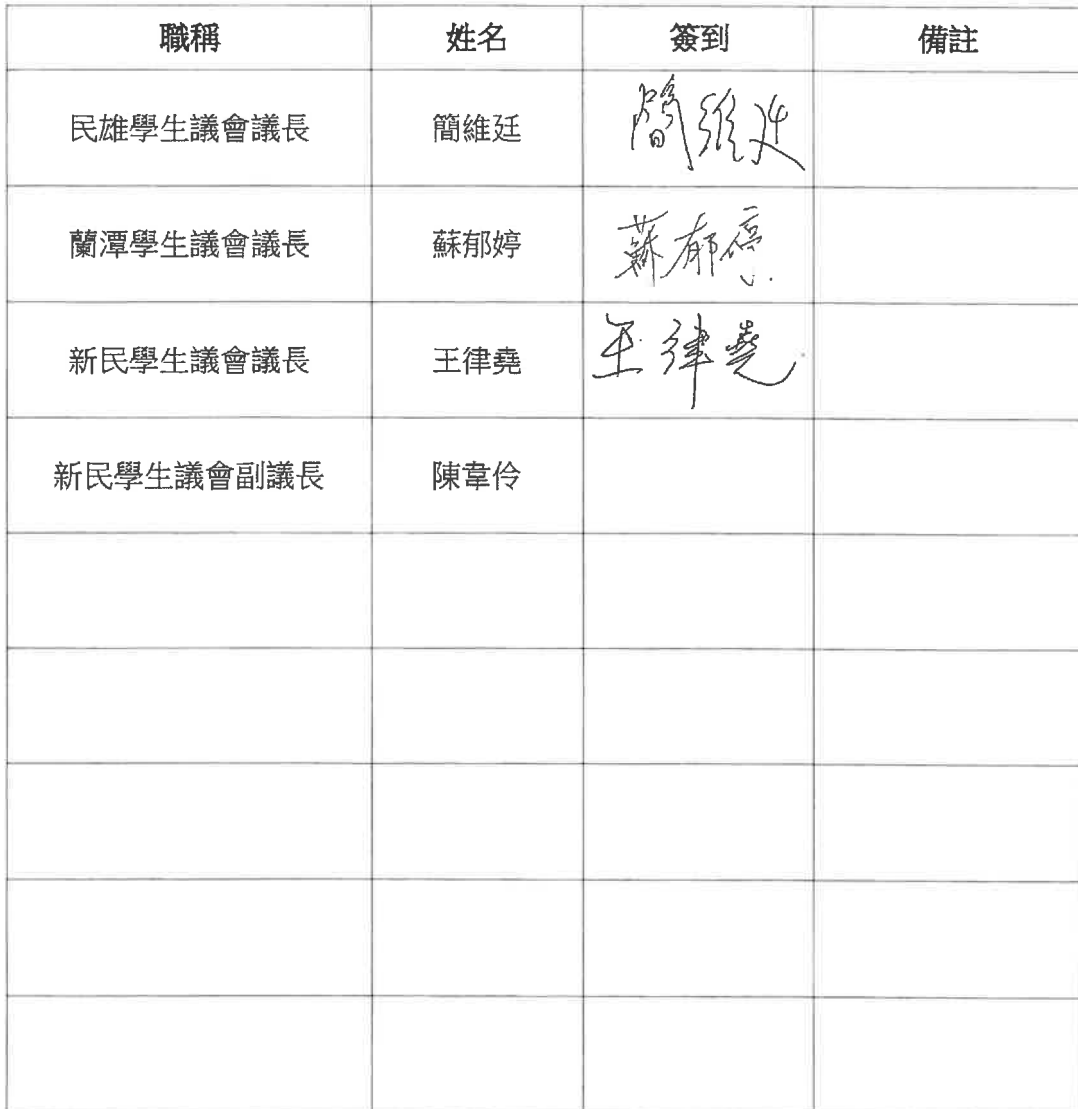 職稱 姓名 簽到 備註
民雄學生議會議長 簡維廷 簡維廷
蘭潭學生議會議長 蘇郁婷 蘇郁婷
新民學生議會議長 王律堯 王律堯
新民學生議會副議長 陳韋伶